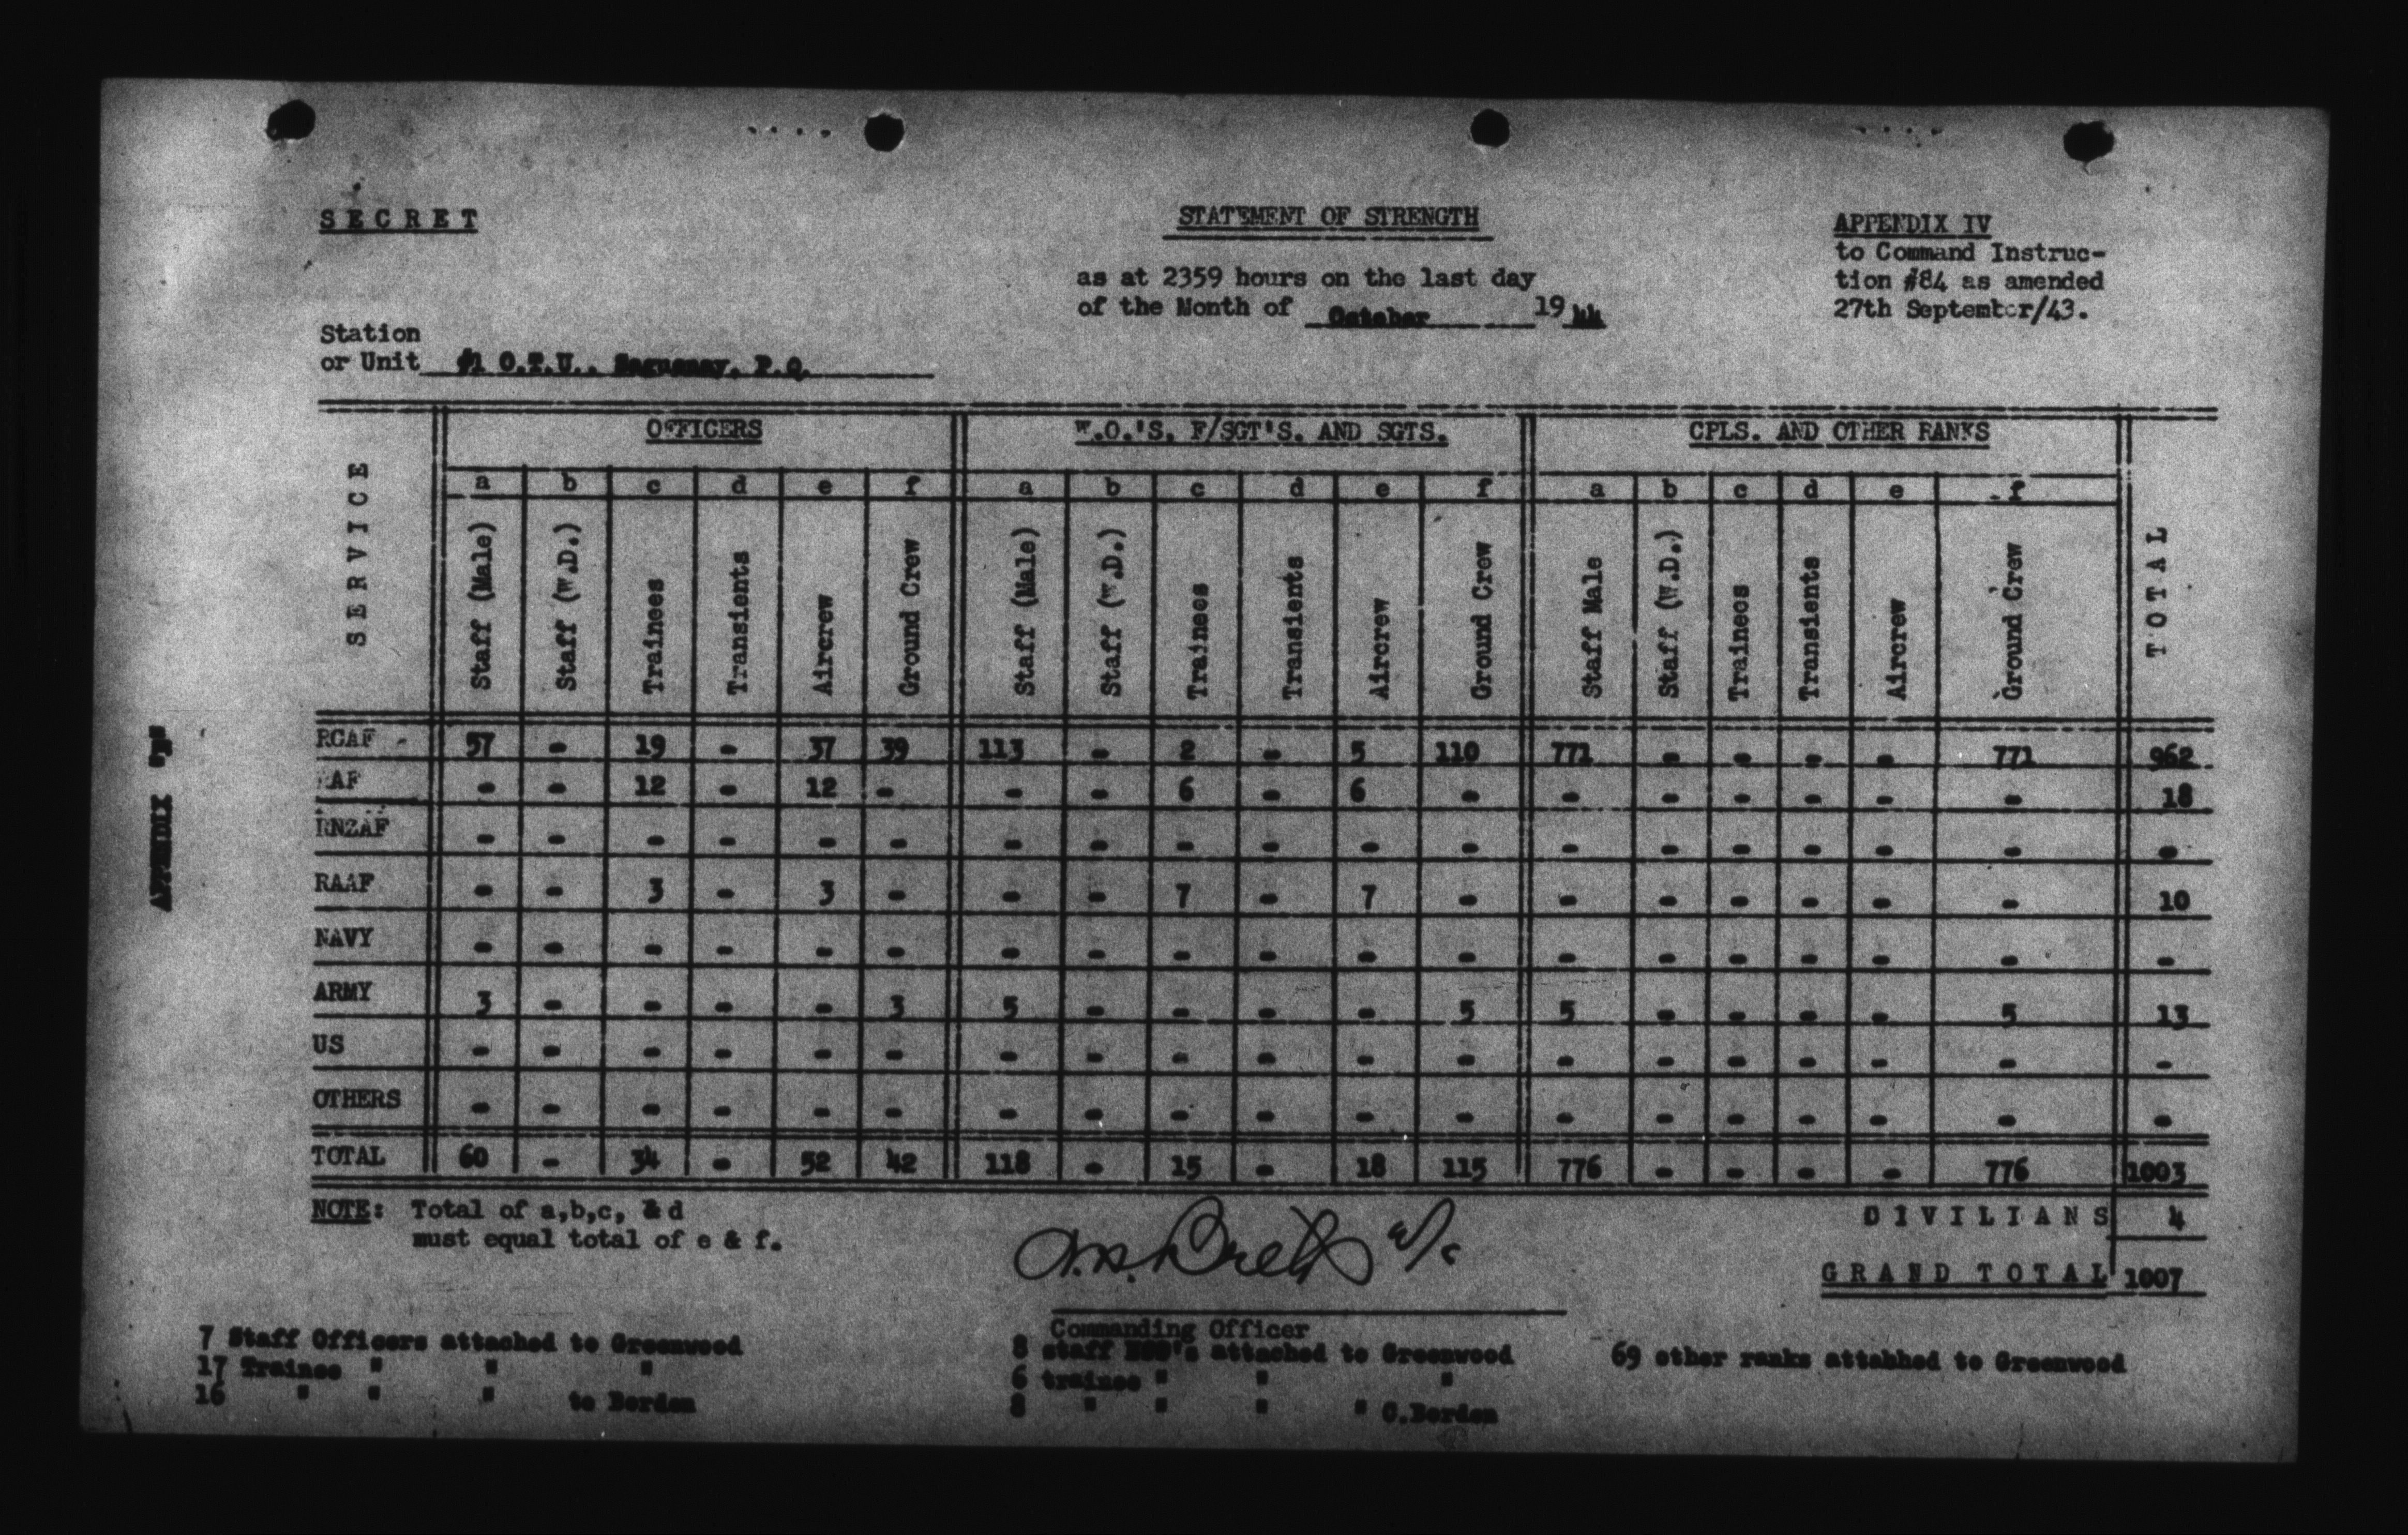 SECRET
STATEMENT OF STRENGTH
APPENDIX IV
to Command Instruc-
tion #84 as amended
27th September/43.
as at 2359 hours on the last day
of the Month of October 1944
Station
or Unit #1 O.T.U., Saguenay, P.Q.
SERVICE
OFFICERS W.O.'S, F/SGT'S. AND SGTS. CPLS. AND OTHER RANKS TOTAL
a b c d e f a b c d e f a b c d e f
Staff (Male) Staff (W.D.) Trainees Transients Aircrew Ground Crew Staff (Male) Staff (W.D.) Trainees Transients Aircrew Ground Crew Staff Male Staff (W.D.) Trainees Transients Aircrew Ground Crew
RCAF 57 - 19 - 37 39 113 - 2 - 5 110 771 - - - - 771 962
RAF - - 12 - 12 - - - 6 - 6 - - - - - - - 18
RNZAF - - - - - - - - - - - - - - - - - - -
RAAF - - 3 - 3 - - - 7 - 7 - - - - - - - 10
NAVY - - - - - - - - - - - - - - - - - - -
ARMY 3 - - - - 3 5 - - - - 5 5 - - - - 5 13
US - - - - - - - - - - - - - - - - - - -
OTHERS - - - - - - - - - - - - - - - - - - -
TOTAL 60 - 34 - 52 42 118 - 15 - 18 115 776 - - - - 776 1003
NOTE: Total of a,b,c, & d
must equal total of e & f.
CIVILIANS 4
GRAND TOTAL 1007
Commanding Officer
7 Staff Officers attached to Greenwood
17 Trainee " " "
16 " " " to Borden
8 staff NCO's attached to Greenwood
6 trainee " " "
8 " " " " C.Borden
69 other ranks attabhed to Greenwood
APPENDIX